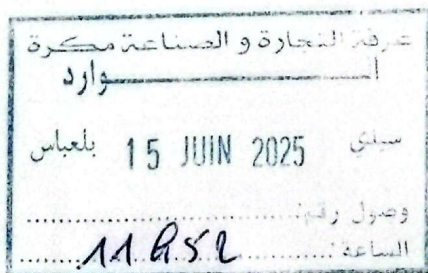 غرفة التجارة و الصناعة مكرة
الـــــــــــوارد
سيدي 15 JUIN 2025 بلعباس
وصول رقم:..........................
الساعة:......11h52......